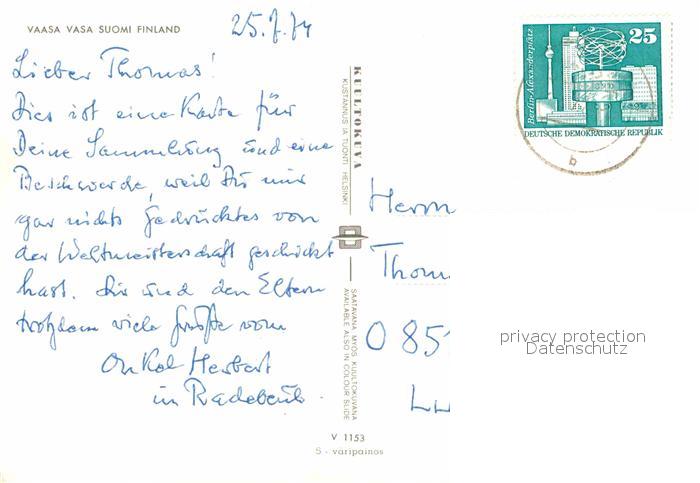 VAASA VASA SUOMI FINLAND
25.7.74
Lieber Thomas!
Dies ist eine Karte für
Deine Sammlung und eine
Beschwerde, weil Du mir
gar nichts Gedrucktes von
der Weltmeisterschaft geschickt
hast. Dir und den Eltern
trotzdem viele Grüße vom
Onkel Herbert
in Radebeul.
KUULTOKUVA
KUSTANNUS JA TUONTI HELSINKI
SAATAVANA MYÖS KUULTOKUVANA
AVAILABLE ALSO IN COLOUR SLIDE
V 1153
5 - väripainos
Berlin-Alexanderplatz
25
DEUTSCHE DEMOKRATISCHE REPUBLIK
b
Herrn
Thom
O 85
privacy protection
Datenschutz